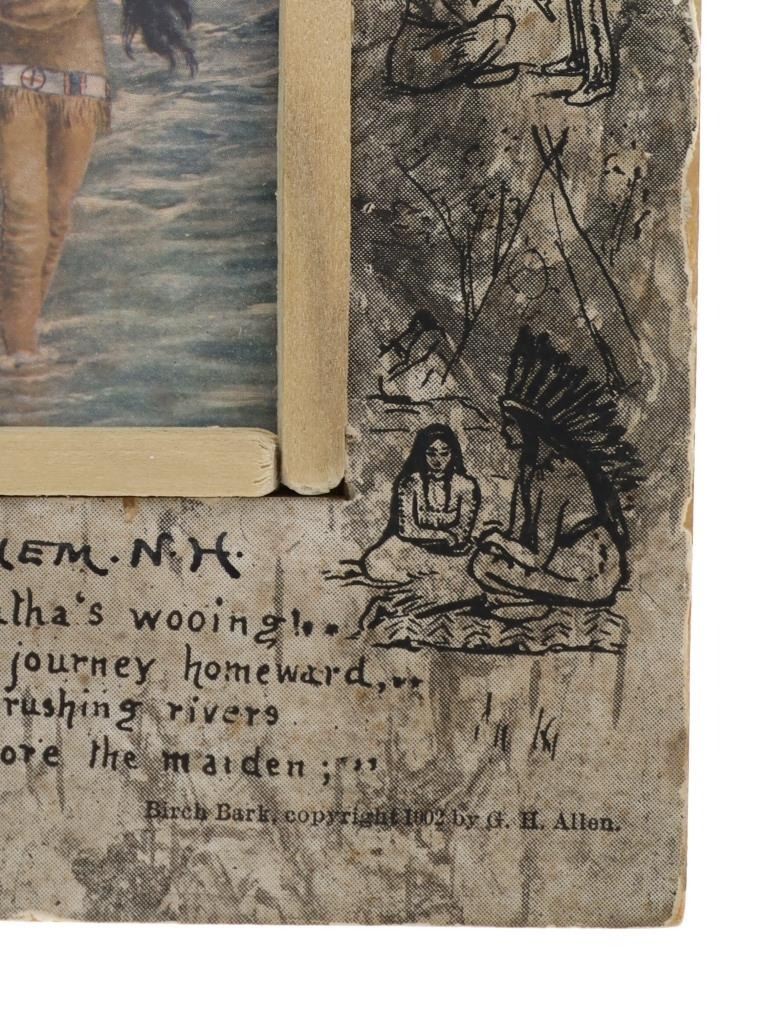 HEM. N. H.
tha's wooing!..
journey homeward,..
rushing rivers
ore the maiden ;"''
Birch Bark, copyright 1902 by G. H. Allen.